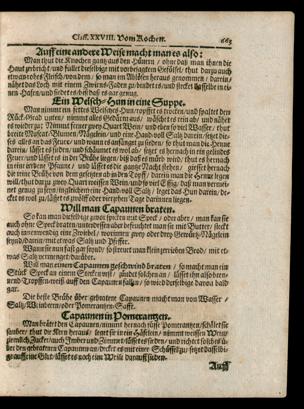 Class. XXVIII. Vom Kochen. 665
Auff eine andere Weise macht man es also:
Man thut die Knochen gantz aus den Hünern / ohne daß man ihnen die
Haut zerbricht / und füllet dieselbige mit vorbesagtem Gefülsel / thut darzu auch
etwan rohes Fleisch / von dem / so man im
nähet das Loch mit einem Zwirns-Faden zu / bindet es / und stecket dasselbe in ei-
nen Hafen / und siedet es / biß daß es gar genug.
Ein Welsch-Han in eine Suppe.
Man nimmt ein fettes Welsches Hun / ropfft es trocken / und spaltet den
Rück-Grad unten / nimmt alles Gedärm aus / wäschet es rein ab / und nähet
es wieder zu. Nimmt ferner zwey Quart Wein / und eben so viel Wasser / thut
darein Muscat-Blumen / Nägelein / und eine Hand voll Saltz darein / setzt die-
ses alles an das Feuer / und wann es anfängt zu sieden / so thut man die Henne
darein / lässet es sieden / und schäumet es wol ab / setzt es hernach in ein gelindes
Feuer / und lässet es in der Brühe ligen / biß daß es mürb wird / thut es hernach
in eine erdene Pfanne / und lässet es die gantze Nacht stehen / giesset hernach
die reine Brühe von dem gesetzten ab in den Topff / darein man die Henne legen
will / thut darzu zwey Quart weissen Wein / und so viel Essig / daß man vermei-
net / es genug zu seyn / ingleichem eine Hand voll Saltz / leget das Hun darein / de-
cket es wol zu / lässet es zwölff oder vierzehen Tage darinnen liegen.
Will man Capaunen braten.
So kan man dieselbige zwar spicken mit Speck / oder aber / man kan sie
auch ohne Speck braten / unterdessen aber befeuchtet man sie mit Butter / steckt
oder auch unterweilen eine Zwiebel / worinnen zwey oder drey Gewürtz-Nägelein
seynd / darein / mit etwas Saltz und Pfeffer.
Wann sie nun fast gar seynd / so streuet man klein zerrieben Brod / mit et-
was Saltz vermenget darüber.
Will man einen Capaunen geschwind braten / so macht man ein
Stück Speck an einem Stecken vest / zündet solches an / lässet ihn also bren-
nend Tropffen-weiß auff den Capaunen fallen / so wird derselbige davon bald
gar.
Die beste Brühe über gebratene Capaunen macht man von Wasser /
Saltz / Weinbeern / oder Pomerantzen-Safft.
Capaunen in Pomerantzen.
Man brätet den Capaunen / nimmt hernach süsse Pomerantzen / schälet sie
sauber / thut die Kern heraus / leget sie in ein Häfelein / nimmt weissen Wein /
ziemlich Zucker / auch Imber und Zimmet / lässet es sieden / und richtet solches ü-
ber den gebratenen Capaunen an / decket es mit einer Schüssel zu / setzt dasselbi-
ge auff eine Glut / lässet es noch eine Weile darauff sieden.
Auff